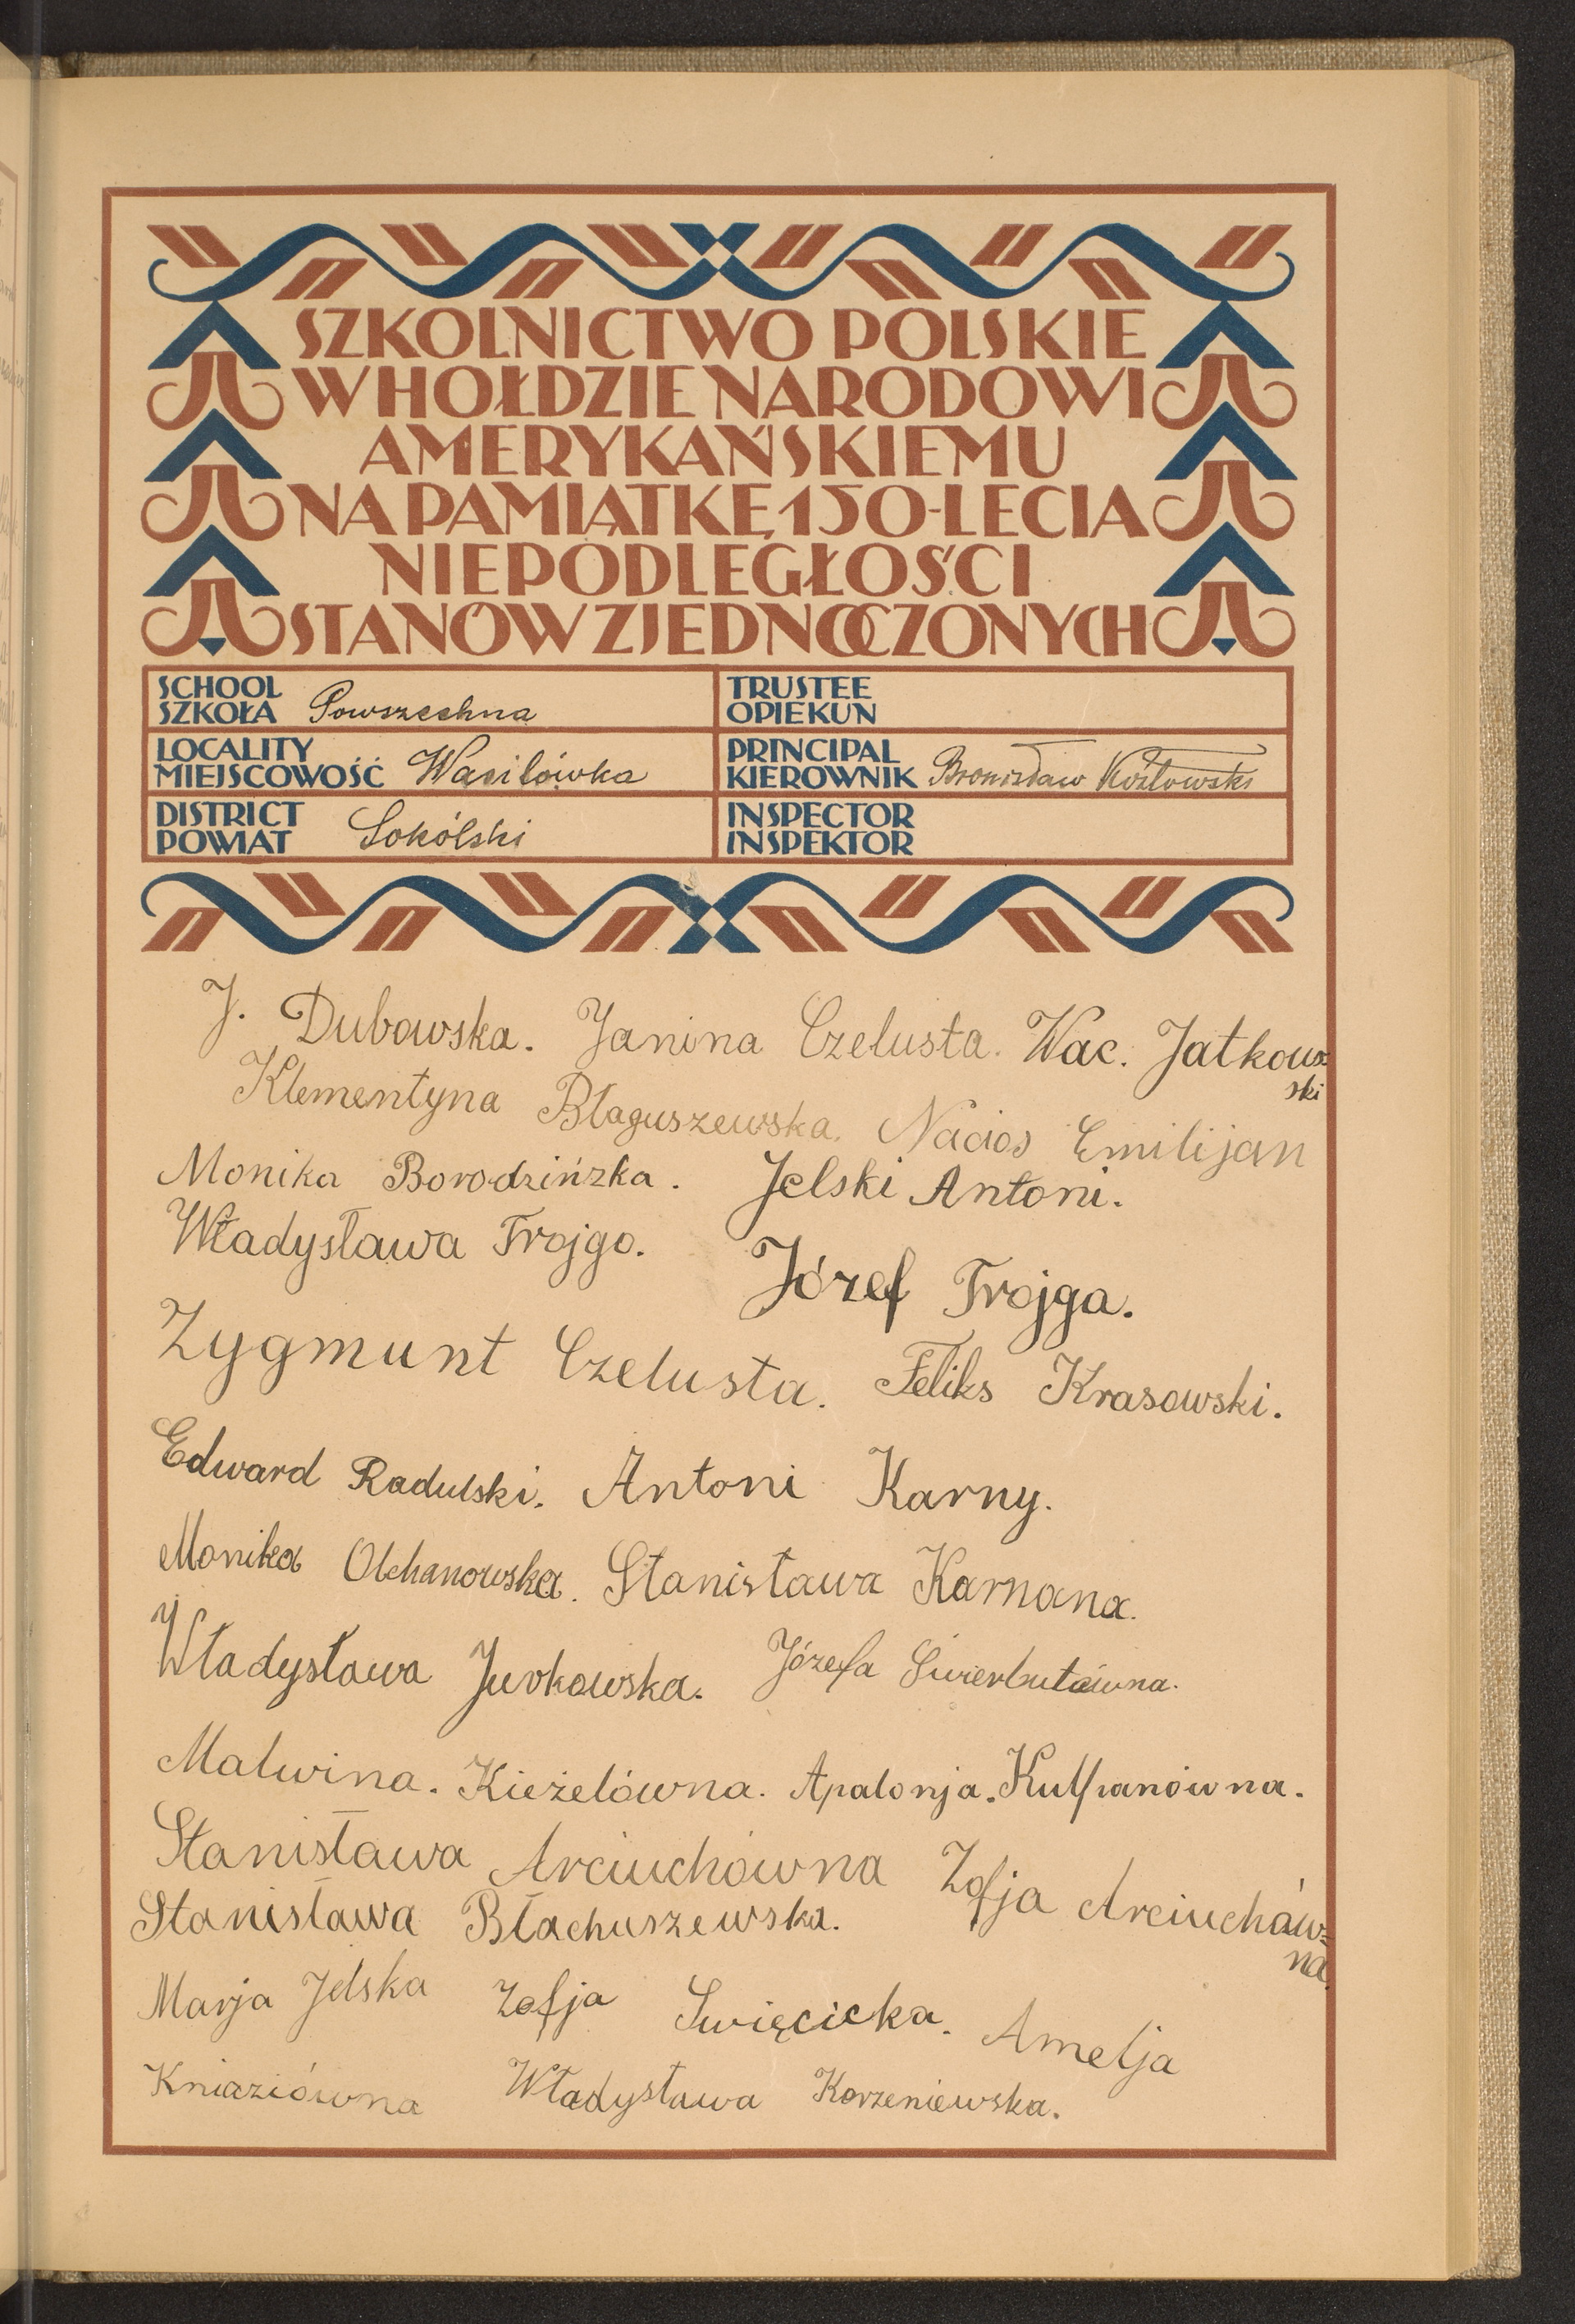 SZKOLNICTWO POLSKIE
W HOŁDZIE NARODOWI
AMERYKAŃSKIEMU
NA PAMIĄTKĘ 150-LECIA
NIEPODLEGŁOŚCI
STANÓW ZJEDNOCZONYCH
SCHOOL
SZKOŁA Powszechna
TRUSTEE
OPIEKUN
LOCALITY
MIEJSCOWOŚĆ Wasilówka
PRINCIPAL
KIEROWNIK Bronisław Kozłowski
DISTRICT
POWIAT Sokólski
INSPECTOR
INSPEKTOR
J. Dubowska. Janina Czelusta. Wac. Jatkow=
ski
Klementyna Błaguszewska. Nacios Emilijan
Monika Borodzińzka. Jelski Antoni.
Władysława Trojgo. Józef Trojga.
Zygmunt Czelusta. Feliks Krasowski.
Edward Radulski. Antoni Karny.
Monika Olchanowska. Stanisława Karnana.
Władysława Jurkowska. Józefa Świerbutówna.
Malwina. Kieżelówna. Apalonja.
Stanisława Arciuchówna Zofja Arciuchów=
na.
Stanisława Błachuszewska.
Marja Jelska Zofja Święcicka. Amelja
Kniaziówna Władysława Korzeniewska.